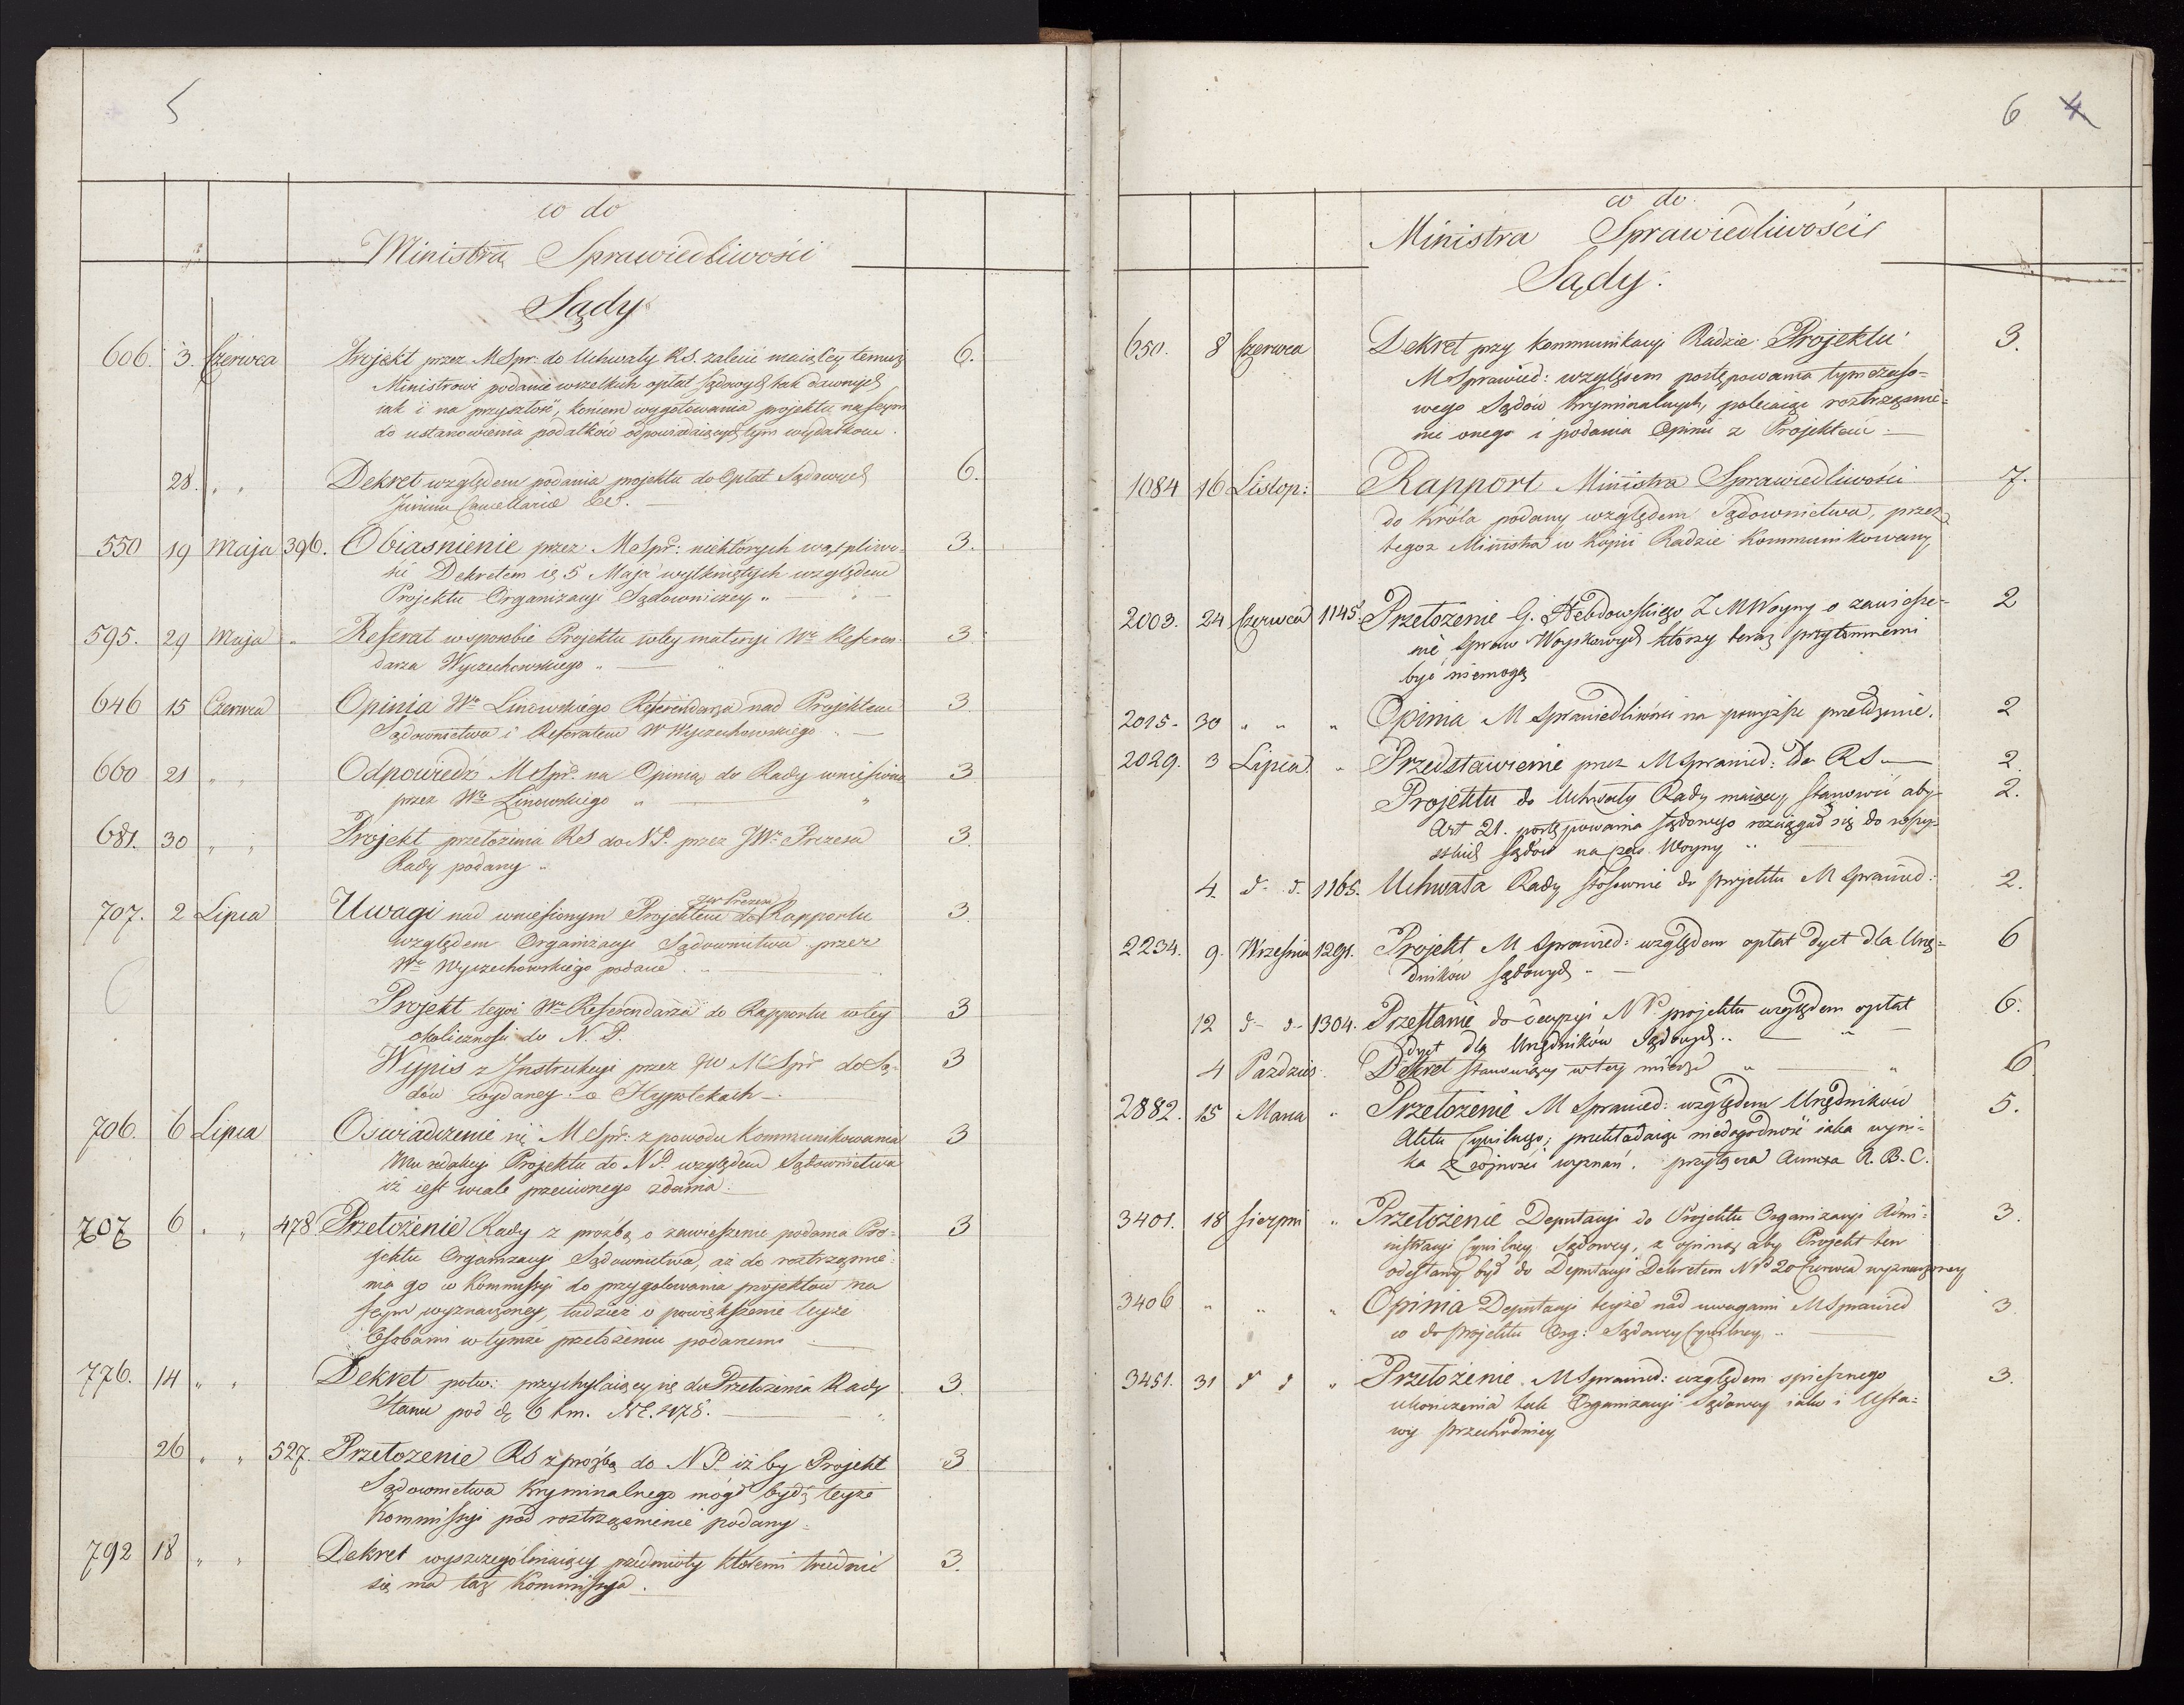 5
co do
Ministra Sprawiedliwości
Sądy
606. 3. Czerwca Projekt przez MSpr: do Uchwały R.S. zalecić maiącey temuż 6.
Ministrowi podanie wszelkich opłat sądowych tak dawnych
iak i na przyszłość, końcem wygotowania projektu na seym
do ustanowienia podatków odpowiadaiących tym wydatkom.
28. " " Dekret względem podania projektu do Opłat Sądowych 6.
Jurium Cancellariae &c.
550 19 Maja 396. Obiasnienie przez MSpr: niektórych wątpliwo- 3.
ści Dekretem 5 Maja wytkniętych względem
Projektu Organizacyi Sądowniczey "
595. 29 Maja " Referat w sposobie Projektu w tey materyi Wo Referen- 3
darza Wyczechowskiego "
646 15 Czerwca Opinia Wo Linowskiego Referendarza nad Projektem 3
Sądownictwa i Referatem W Wyczechowskiego "
660 21 " " Odpowiedź MSpr. na Opinią do Rady wniesioną 3
przez Wo Linowskiego "
681. 30 " " Projekt przełożenia RS do N.P. przez JWo Prezesa 3.
Rady podany "
707. 2 Lipca Uwagi nad wniesionym Projektem do Rapportu 3.
względem Organizacyi Sądownictwa przez
Wo Wyczechowskiego podane
Projekt tegoż Wo Referendarza do Rapportu w tey 3
okoliczności do N. P.
Wypis z Instrukcyi przez JW MSpr do Są- 3
dów wydaney o Hypotekach
706. 6 Lipca Oswiadczenie się MSpr: z powodu kommunikowania 3
Mu redakcyi Projektu do N.P. względem Sądownictwa
iż iest wcale przeciwnego zdania.
707 6 " " 478 Przełożenie Rady z prośbą o zawieszenie podania Pro- 3
jektu Organizacyi Sądownictwa, aż do roztrząśnie-
nia go w Kommissyi do przygotowania projektów na
Seym wyznaczoney, tudzież o powiększenie teyże
Osobami w tymże przełożeniu podanemi
776. 14 " " Dekret potw: przychylaiący się do Przełożenia Rady 3.
Stanu pod d. 6 t.m. No. 478.
26 " " 527. Przełożenie RS z prośbą do N.P. iżby Projekt 3
Sądownictwa Kryminalnego mógł bydź teyże
Kommissyi pod roztrząśnienie podany.
792 18 " " Dekret wyszczególniaiący przedmioty któremi trudnić 3.
się ma taż Kommissya.
6 4
co do
Ministra Sprawiedliwości
Sądy.
650. 8 Czerwca Dekret przy kommunikacyi Radzie Projektu 3.
MSprawied: względem postępowania tymczaso-
wego Sądów kryminalnych, polecaiąc roztrząśnie-
nie onego i podania Opinii z Projektem
1084 16 Listop: Rapport Ministra Sprawiedliwości 7.
do Króla podany względem Sądownictwa, przez
tegoż Ministra w kopii Radzie kommunikowany
2003. 24 Czerwca 1145. Przełożenie G. Hebdowskiego Z MWoyny o zawiesze- 2
nie Spraw Woyskowych którzy teraz przytomnemi
być niemogą
2015. 30 " " " Opinia M Sprawiedliwości na powyższe przełożenie. 2
2029. 3 Lipca " Przedstawienie przez M Sprawied: Do RS 2.
Projektu do Uchwały Rady maiącey stanowić aby 2.
Art 21. postępowania sądowego rozciągał się do wszy-
stkich sądów na czas Woyny "
4 d- d. 1165. Uchwała Rady stosownie do projektu M Sprawied: 2.
2234. 9. Września 1291. Projekt M Sprawied: względem opłat dyet dla Urzę- 6
dników sądowych
12 d- d- 1304. Przesłanie do decyzyi NP projektu względem opłat 6.
dyet dla Urzędników Sądowych
4 Paździer. Dekret stanowiący w tey mierze " 6
2882. 15 Marca " Przełożenie M Sprawied: względem Urzędników 5.
Aktu Cywilnego; przekładaiąc niedogodność iaka wyni-
ka z różności wyznań. przyłącza Annexa A. B. C.
3401. 18 Sierpni " Przełożenie Deputacyi do Projektu Organizacyi Admi- 3.
nistracyi Cywilney Sądowey, z opinią aby Projekt ten
odesłany był do Deputacyi Dekretem NP 20 Czerwca wyznaczoney
3406 " " " Opinia Deputacyi teyże nad uwagami MSprawied 3
co do projektu Org: Sądowey Cywilney
3451. 31 d d " Przełożenie MSprawied: względem spiesznego 3.
ukończenia tak Organizacyi Sądowey iako i Usta-
wy przechodniey